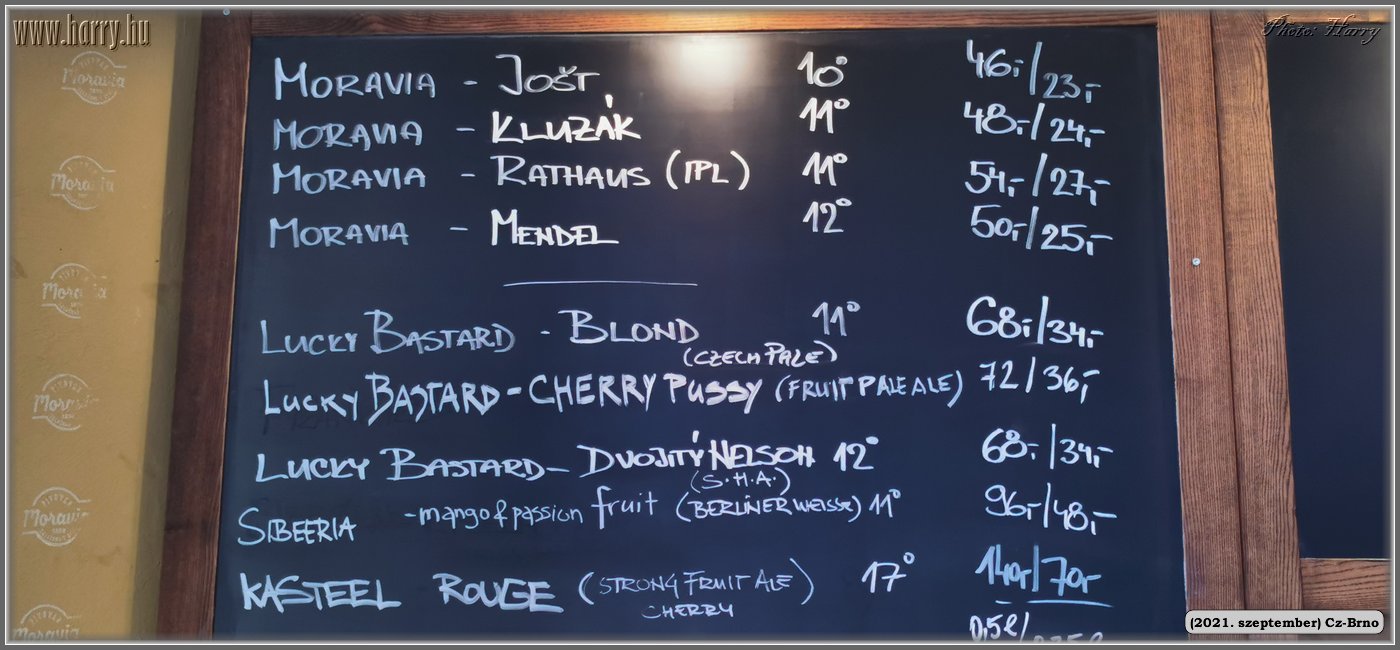 www.harry.hu
Photo: Harry
MORAVIA - JOŠT 10° 46,-/23,-
MORAVIA - KLUZÁK 11° 48,-/24,-
MORAVIA - RATHAUS (IPL) 11° 54,-/27,-
MORAVIA - MENDEL 12° 50,-/25,-
LUCKY BASTARD - BLOND 11° 68,-/34,-
(CZECH PALE)
LUCKY BASTARD - CHERRY PUSSY (FRUIT PALE ALE) 72/36,-
LUCKY BASTARD - DVOJITÝ NELSON 12° 68,-/34,-
(S.H.A.)
SIBEERIA - mango & passion fruit (BERLINER WEISSE) 11° 96,-/48,-
KASTEEL ROUGE (STRONG FRUIT ALE) 17° 140,-/70,-
CHERRY
0,5l/
Moravia
Moravia
Moravia
Moravia
Moravia
Moravia
(2021. szeptember) Cz-Brno